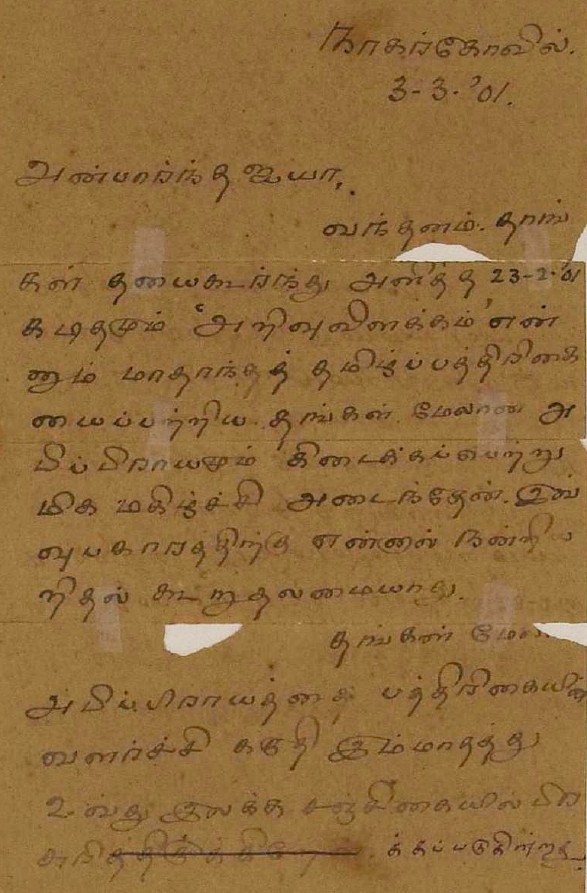 நாகர்கோவில்.
3-3-'01.
அன்பார்ந்த ஐயா,
வந்தனம். தாங்
கள் தயைகூர்ந்து அளித்த 23-2-'01
கடிதமும் 'அறிவுவிளக்கம்' என்
னும் மாதாந்தத் தமிழ்ப்பத்திரிகை
யைப்பற்றிய தங்கள் மேலான அ
பிப்பிராயமும் கிடைக்கப்பெற்று
மிக மகிழ்ச்சி அடைந்தேன். இவ்
வுபகாரத்திற்கு என்னால் நன்றிய
றிதல் கூறுதலமையாது.
தங்கள் மேலா
அபிப்பிராயத்தை பத்திரிகையின்
வளர்ச்சி கருதி இம்மாதத்து
2-வது இலக்க சஞ்சிகையில் பிர
க்கப்படுகின்றது